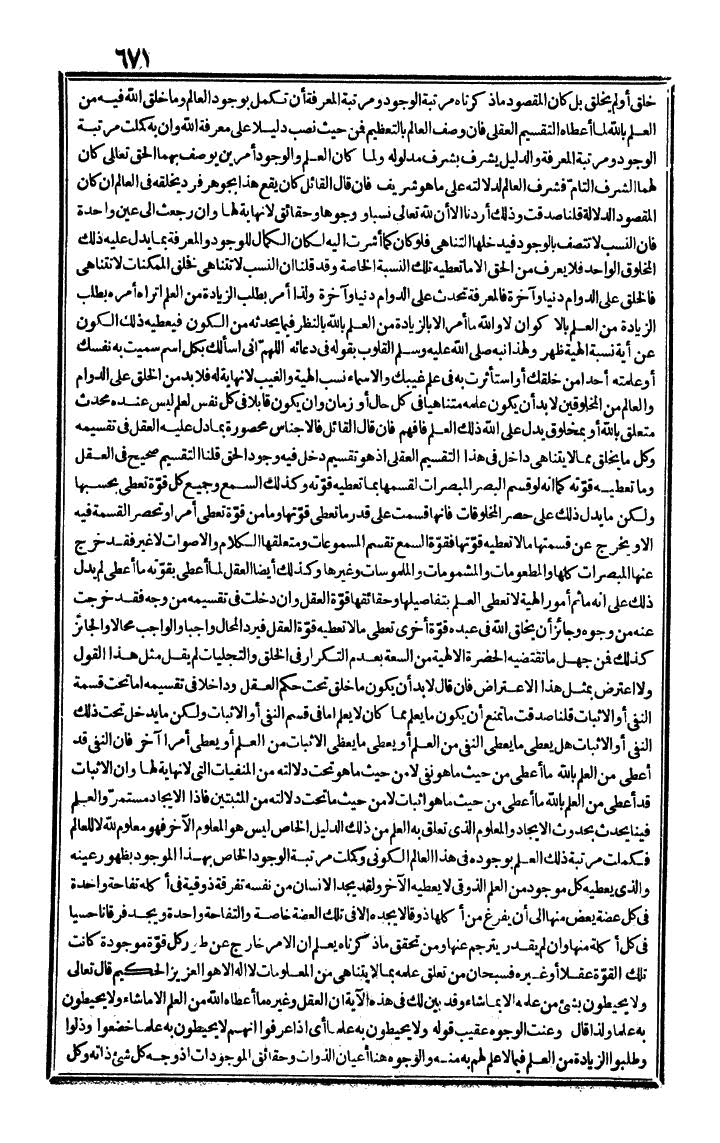 ٦٧١
خلق أولم يخلق بل كان المقصود ماذكرناه مرتبة الوجود ومرتبة المعرفة أن تكمل بوجود العالم وما خلق الله فيه من
العلم بالله لما أعطاه التقسيم العقلي فان وصف العالم بالتعظيم فمن حيث نصب دليلا على معرفة الله وان به كملت مرتبة
الوجود ومرتبة المعرفة والدليل يشرف بشرف مدلوله ولما كان العلم والوجود أمرين يوصف بهما الحق تعالى كان
لهما الشرف التام فشرف العالم لدلالته على ماهو شريف فان قال القائل كان يقع هذا بجوهر فرد يخلقه في العالم ان كان
المقصود الدلالة قلنا صدقت وذلك أردنا الا أن لله تعالى نسبا ووجوها وحقائق لانهاية لها وان رجعت الى عين واحدة
فان النسب لا تتصف بالوجود فيدخلها التناهي فلو كان كما أشرت اليه لكان الكمال للوجود والمعرفة بما يدل عليه ذلك
المخلوق الواحد فلا يعرف من الحق الا ما تعطيه تلك النسبة الخاصة وقد قلنا ان النسب لا تتناهى فخلق الممكنات لا تتناهى
فالخلق على الدوام دنيا وآخرة فالمعرفة تحدث على الدوام دنيا وآخرة ولذا أمر بطلب الزيادة من العلم اتراه أمره بطلب
الزيادة من العلم بالاكوان لا والله ما أمر الا بالزيادة من العلم بالله بالنظر فيما يحدثه من الكون فيعطيه ذلك الكون
عن أية نسبة الهية ظهر ولهذا نبه صلى الله عليه وسلم القلوب بقوله في دعائه اللهم انى اسألك بكل اسم سميت به نفسك
أوعلمته أحدا من خلقك أو استأثرت به في علم غيبك والاسماء نسب الهية والغيب لانهاية له فلابد من الخلق على الدوام
والعالم من المخلوقين لا بد أن يكون علمه متناهيا في كل حال أو زمان وان يكون قابلا في كل نفس لعلم ليس عنده محدث
متعلق بالله أو بمخلوق يدل على الله ذلك العلم فافهم فان قال القائل فالاجناس محصورة بما دل عليه العقل في تقسيمه
وكل ما يخلق مما لا يتناهى داخل في هذا التقسيم العقلي اذ هو تقسيم دخل فيه وجود الحق قلنا التقسيم صحيح في العقل
وما تعطيه قوته كما انه لو قسم البصر المبصرات لقسمها بما تعطيه قوته وكذلك السمع وجميع كل قوة تعطى بحسبها
ولكن ما يدل ذلك على حصر المخلوقات فانها قسمت على قدر ما تعطى قوتها وما من قوة تعطى أمرا وتحصر القسمة فيه
الا ويخرج عن قسمتها ما لا تعطيه قوتها فقوة السمع تقسم المسموعات ومتعلقها الكلام والاصوات لا غير فقد خرج
عنها المبصرات كلها والمطعومات والمشمومات والملموسات وغيرها وكذلك أيضا العقل لما أعطى بقوته ما أعطى لم يدل
ذلك على انه ما ثم أمور الهية لا تعطى العلم بتفاصيلها وحقائقها قوة العقل وان دخلت في تقسيمه من وجه فقد خرجت
عنه من وجوه وجائز أن يخلق الله في عبده قوة أخرى تعطى ما لا تعطيه قوة العقل فيرد المحال واجبا والواجب محالا والجائز
كذلك فمن جهل ما تقتضيه الحضرة الالهية من السعة بعدم التكرار في الخلق والتجليات لم يقل مثل هذا القول
ولا اعترض بمثل هذا الاعتراض فان قال لا بد أن يكون ما خلق تحت حكم العقل وداخلا في تقسيمه اما تحت قسمة
النفى أو الاثبات قلنا صدقت ما تمنع أن يكون ما يعلم مما كان لا يعلم اما في قسم النفى أو الاثبات ولكن ما يدخل تحت ذلك
النفى أو الاثبات هل يعطى ما يعطى النفى من العلم أو يعطى ما يعطى الاثبات من العلم أو يعطى أمرا آخر فان النفى قد
أعطى من العلم بالله ما أعطى من حيث ما هو نفى لا من حيث ما هو تحت دلالته من المنفيات التي لانهاية لها وان الاثبات
قد أعطى من العلم بالله ما أعطى من حيث ما هو اثبات لا من حيث ما تحت دلالته من المثبتين فاذا الايجاد مستمر والعلم
فينا يحدث بحدوث الايجاد والمعلوم الذى تعلق به العلم من ذلك الدليل الخاص ليس هو المعلوم الآخر فهو معلوم لله لا للعالم
فكملت مرتبة ذلك العلم بوجوده في هذا العالم الكونى وكملت مرتبة الوجود الخاص بهذا الموجود بظهور عينه
والذى يعطيه كل موجود من العلم الذوقي لا يعطيه الآخر ولقد يجد الانسان من نفسه تفرقة ذوقية في أكله تفاحة واحدة
في كل عضة يعض منها الى أن يفرغ من أكلها ذوقا لا يجده الا في تلك العضة خاصة والتفاحة واحدة ويجد فرقانا حسيا
في كل أكلة منها وان لم يقدر يترجم عنها ومن تحقق ما ذكرناه يعلم ان الامر خارج عن طور كل قوة موجودة كانت
تلك القوة عقلا أو غيره فسبحان من تعلق علمه بما لا يتناهى من المعلومات لا اله الا هو العزيز الحكيم قال تعالى
ولا يحيطون بشئ من علمه الا بما شاء وقد بين لك في هذه الآية ان العقل وغيره ما أعطاه الله من العلم الا ما شاء ولا يحيطون
به علما ولذا قال وعنت الوجوه عقيب قوله ولا يحيطون به علما أى اذا عرفوا انهم لا يحيطون به علما خضعوا وذلوا
وطلبوا الزيادة من العلم فيما لا علم لهم به منه والوجوه هنا أعيان الذوات وحقائق الموجودات اذ وجه كل شئ ذاته وكل